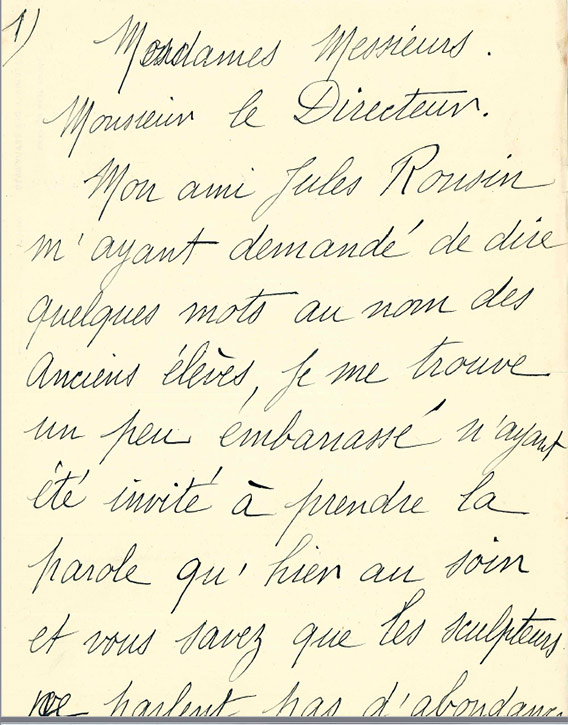 1)
Mesdames Messieurs.
Monsieur le Directeur.
Mon ami Jules Rousin
m'ayant demandé de dire
quelques mots au nom des
Anciens élèves, Je me trouve
un peu émbarrassé n'ayant
été invité à prendre la
parole qu'hier au soir
et vous savez que les sculpteurs
ne parlent pas d'abondance